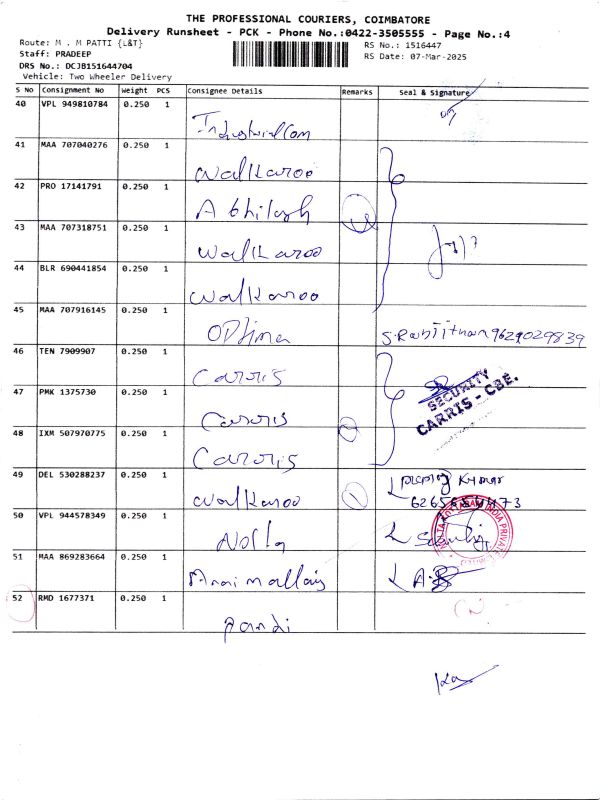 THE PROFESSIONAL COURIERS, COIMBATORE
Delivery Runsheet - PCK - Phone No.:0422-3505555 - Page No.:4
Route: M . M PATTI {L&T}
RS No.: 1516447
Staff: PRADEEP
RS Date: 07-Mar-2025
DRS No.: DCJB151644704
Vehicle: Two Wheeler Delivery
S No Consignment No Weight PCS Consignee Details Remarks Seal & Signature
40 VPL 949810784 0.250 1
Industrial Com
41 MAA 707040276 0.250 1
Walkaroo
42 PRO 17141791 0.250 1
Abhilash
43 MAA 707318751 0.250 1
Walkaroo
44 BLR 690441854 0.250 1
Walkaroo
45 MAA 707916145 0.250 1
Optima S.Ranjithkumar 9629029839
46 TEN 7909907 0.250 1
Carris
SECURITY
CARRIS - CBE.
47 PMK 1375730 0.250 1
Carris
48 IXM 507970775 0.250 1
Carris
49 DEL 530288237 0.250 1
Walkaroo Kumar
50 VPL 944578349 0.250 1
Nolta
51 MAA 869283664 0.250 1
Anaimallais
52 RMD 1677371 0.250 1
Pandi